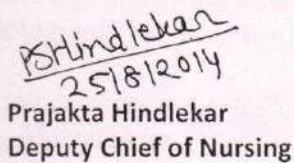 PSHindlekar
25/8/2014
Prajakta Hindlekar
Deputy Chief of Nursing